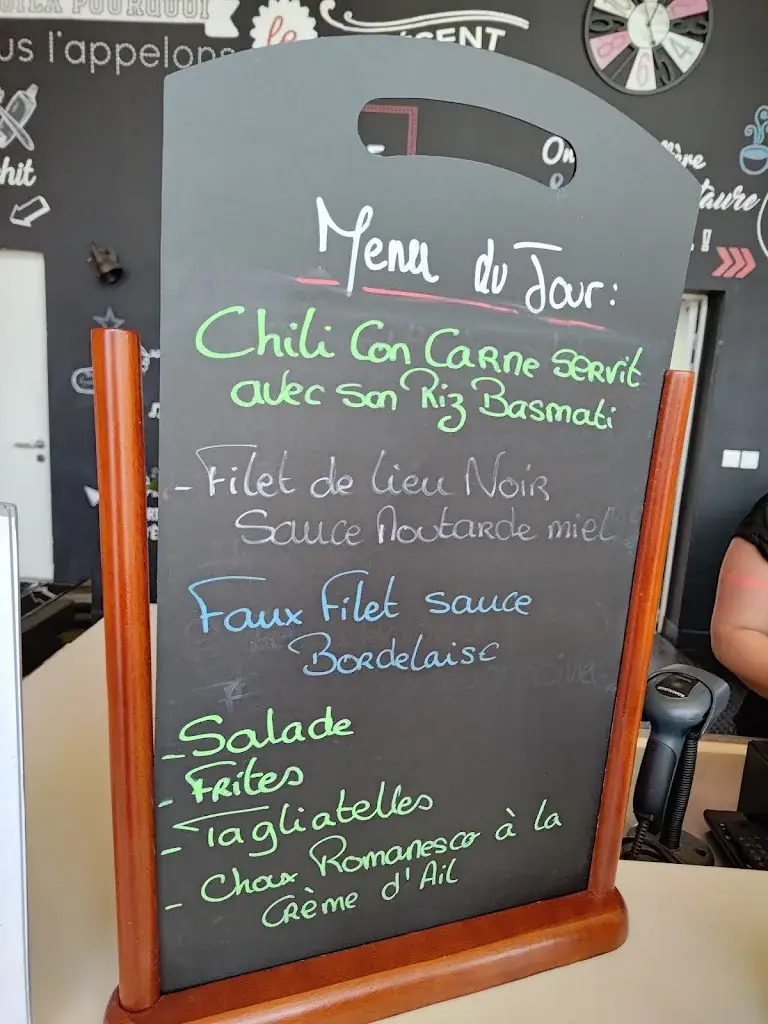 VOILÀ POURQUOI
us l'appelons
le
On
ère
taure
!
hit
Menu du Jour:
Chili Con Carne servit
avec son Riz Basmati
- Filet de lieu Noir
Sauce Moutarde miel
Faux Filet sauce
Bordelaise
- Salade
- Frites
- Tagliatelles
- Choux Romanesco à la
Crème d'Ail